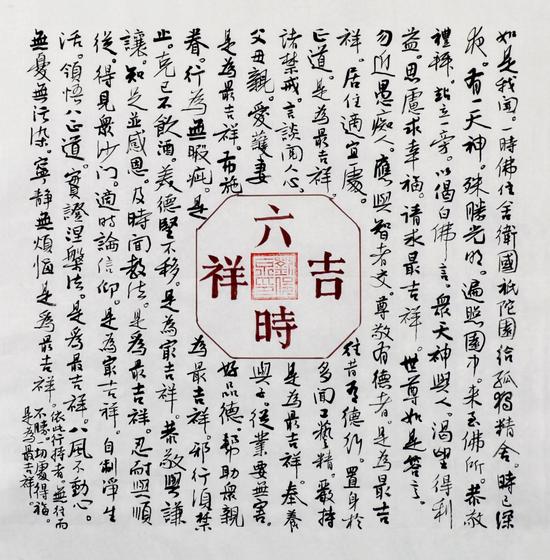 如是我聞。一時佛住舍衛國祇陀園給孤獨精舍。時已深
夜。有一天神。殊勝光明。遍照園中。來至佛所。恭敬
禮拜。站立一旁。以偈白佛言、眾天神與人。渴望得利
益。思慮求幸福。請求最吉祥。世尊如是答言。
勿近愚癡人。應與智者交。尊敬有德者。是為最吉
祥。居住適宜處。往昔有德行。置身於
正道。是為最吉祥。多聞工藝精。嚴持
諸禁戒。言談悅人心。是為最吉祥。奉養
父母親。愛護妻與子。從業要無害。
是為最吉祥。布施好品德。幫助眾親
眷。行為無瑕疵。是為最吉祥。邪行須禁
止。克己不飲酒。美德堅不移。是為最吉祥。恭敬與謙
讓。知足並感恩。及時聞教法。是為最吉祥。忍耐與順
從。得見眾沙門。適時論信仰。是為最吉祥。自制淨生
活。領悟八正道。實證涅槃法。是為最吉祥。八風不動心。
無憂無污染。寧靜無煩惱。是為最吉祥。
依此行持者。無往而
不勝。一切處得福。
是為最吉祥。
六時吉祥